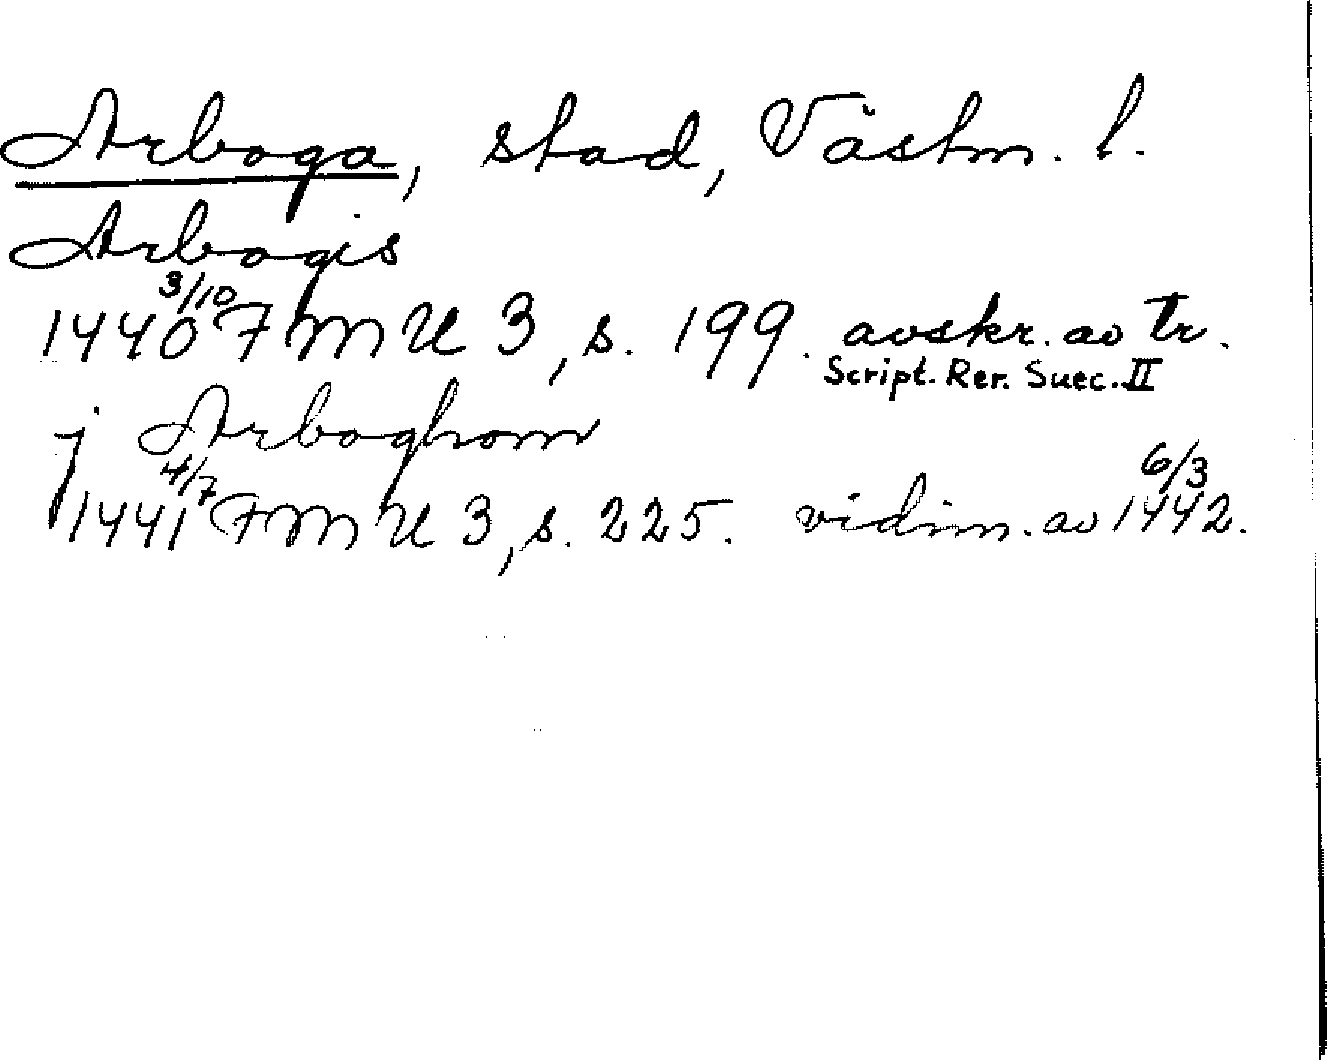 Arboga, stad, Västm. l.
Arbogis
1440 3/10 FMU 3, s. 199. avskr. av tr.
Script. Rer. Suec. II
j Arboghom
1441 4/7 FMU 3, s. 225. vidim. av 6/3 1442.